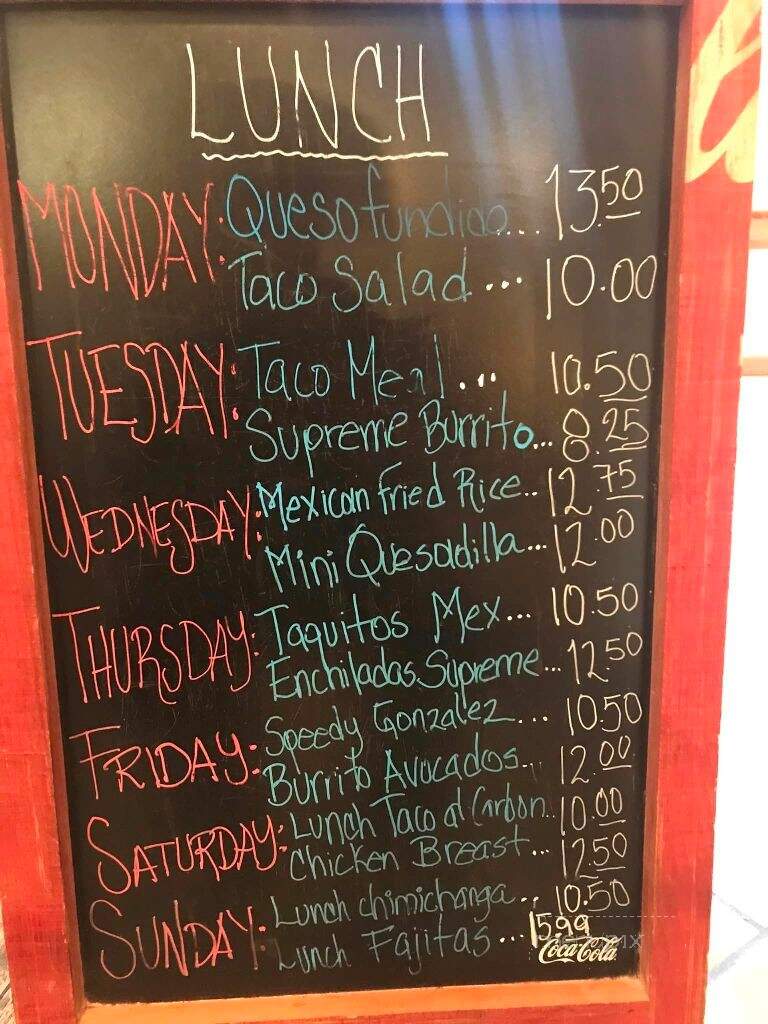 LUNCH
MONDAY: Queso fundido.... 13.50
Taco Salad ... 10.00
TUESDAY: Taco Meal ... 10.50
Supreme Burrito... 8.25
WEDNESDAY: Mexican Fried Rice.. 12.75
Mini Quesadilla... 12.00
THURSDAY: Taquitos Mex... 10.50
Enchiladas Supreme... 12.50
FRIDAY: Speedy Gonzalez... 10.50
Burrito Avocados... 12.00
SATURDAY: Lunch Taco al Carbon.. 10.00
Chicken Breast... 12.50
SUNDAY: Lunch chimichanga... 10.50
Lunch Fajitas ... 15.99
Coca-Cola